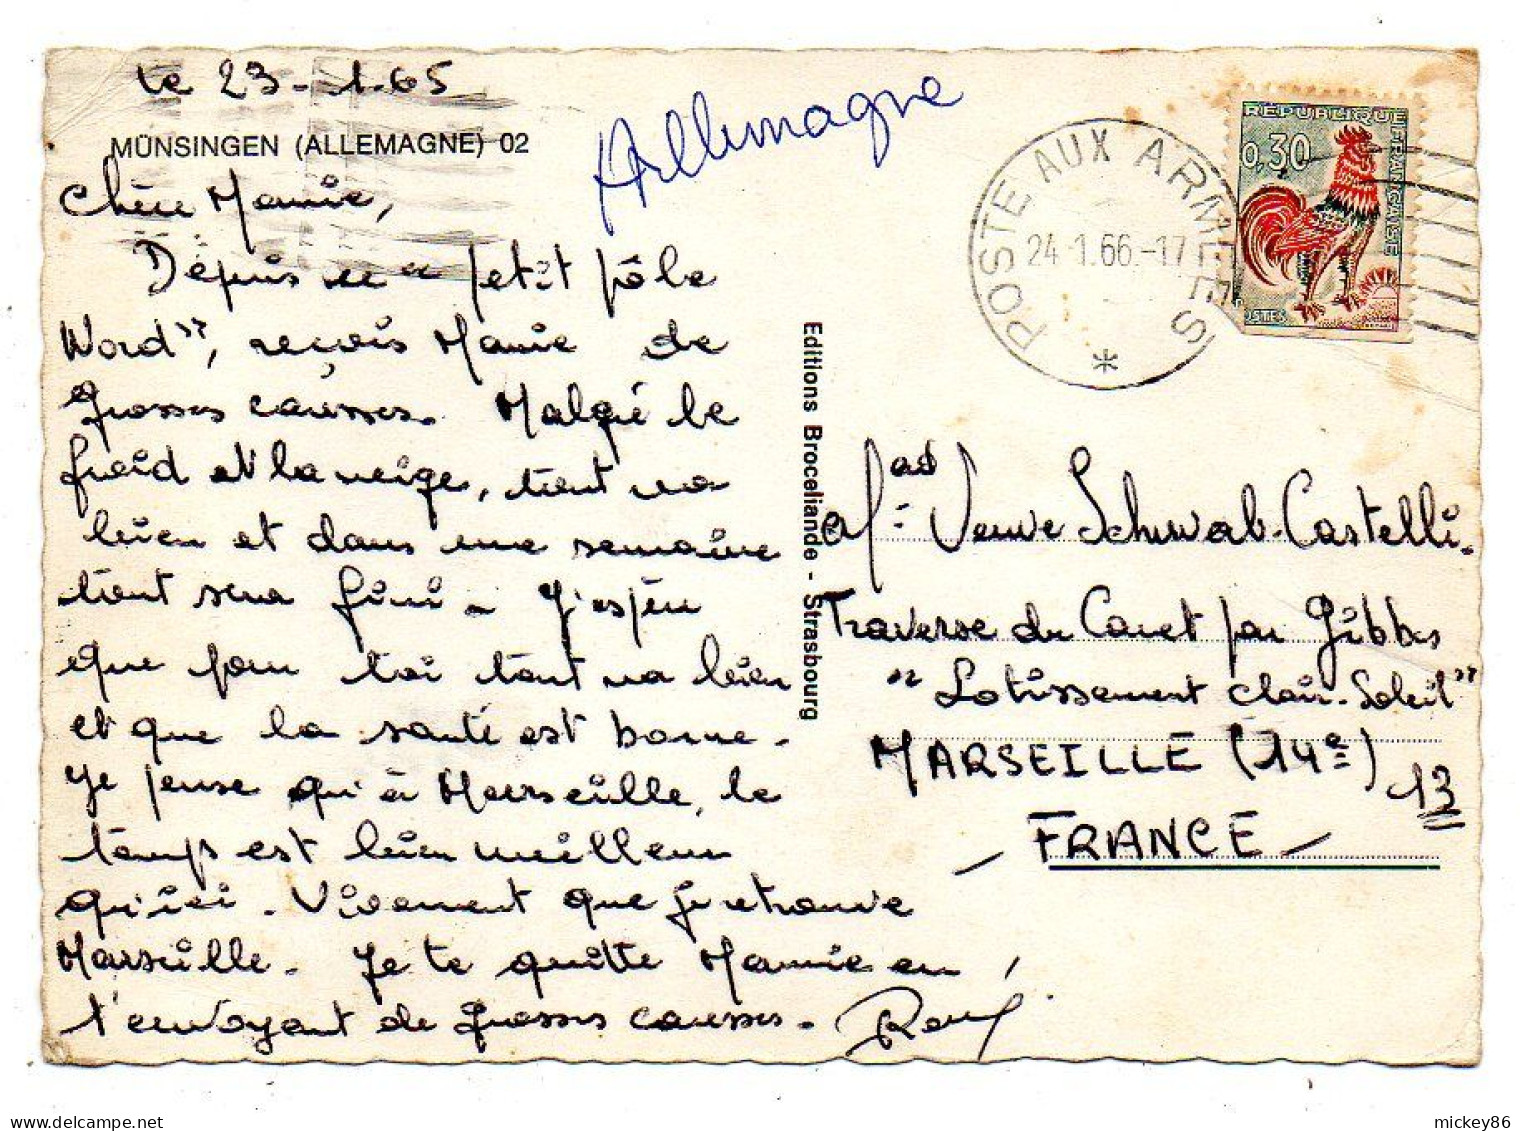 le 23-1-65
MÜNSINGEN (ALLEMAGNE) 02
Allemagne
Chère Mamie,
Depuis ce " petit pôle
Nord", reçois Mamie de
grosses caresses. Malgré le
froid et la neige, tout va
bien et dans une semaine
tout sera fini - J'espère
que pour toi tout va bien
et que la santé est bonne -
Je pense qu'à Marseille, le
temps est bien meilleur
qu'ici. Vivement que je retrouve
Marseille. Je te quitte Mamie en
t'envoyant de grosses caresses.
René
Editions Broceliande - Strasbourg
POSTE AUX ARMEES
24-1.66.-17
*
REPUBLIQUE FRANÇAISE
0,30
POSTES
Veuve Schwab-Castelli.
Traverse du Canet par Gibbes
"Lotissement Clair-Soleil"
MARSEILLE (14e) 13
- FRANCE -
mickey86